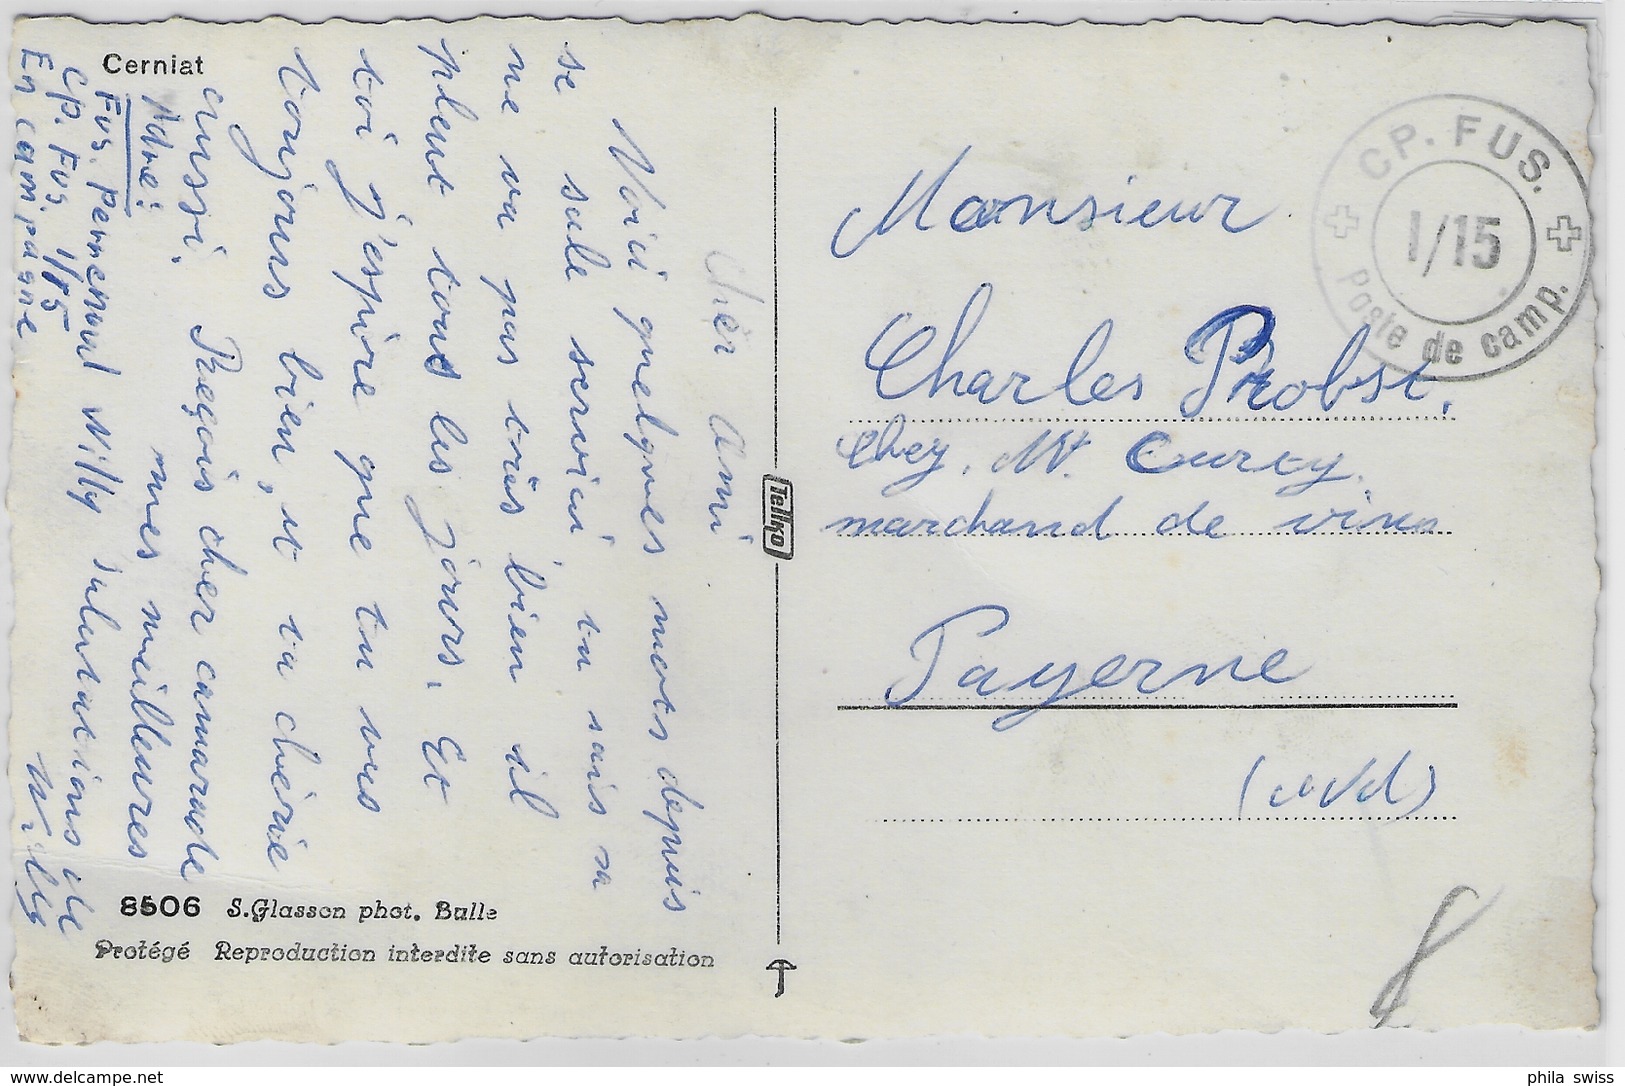 Cerniat
Cher Ami
Voici quelques mots depuis
se sale service tu sais sa
ne va pas très bien il
pleut tous les jours. Et
toi j'espère que tu vas
toujours bien, et ta chérie
aussi. Reçois cher camarade
mes meilleures
salutations de
Willy
Adre:
Fus. Permenoud Willy
Cp. Fus 1/15
En campagne
8506 S. Glasson phot. Bulle
Protégé Reproduction interdite sans autorisation
Tellko
CP. FUS.
I/15
Poste de camp.
Monsieur
Charles Probst.
Chez. Mr. Curcy.
marchand de vins
Payerne
(Vd)
8
phila swiss